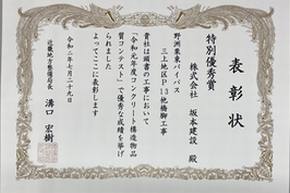 表彰状
特別優秀賞
株式会社 坂本建設 殿
野洲栗東バイパス
三上地区P13他橋脚工事
貴社は頭書の工事において
「令和元年度コンクリート構造物品
質コンテスト」で優秀な成績を挙げ
られました
よってここに表彰します
令和二年七月二十九日
近畿地方整備局長
溝口宏樹